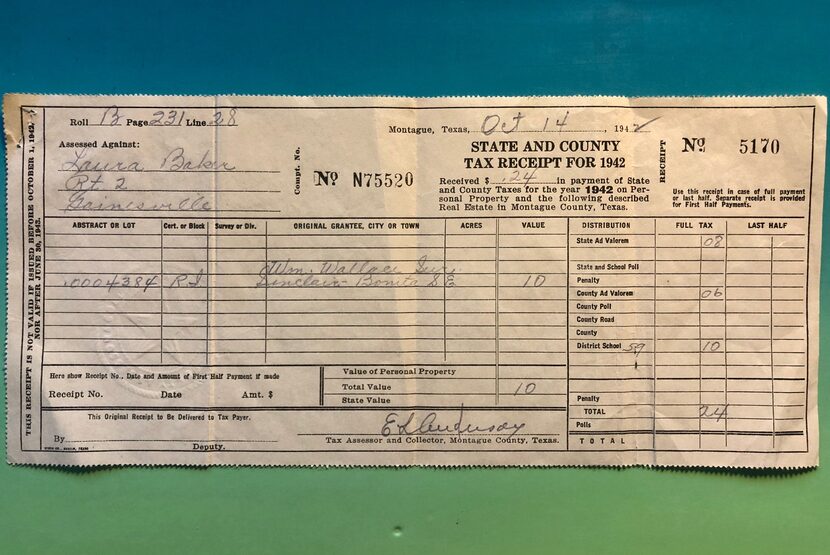 THIS RECEIPT IS NOT VALID IF ISSUED BEFORE OCTOBER 1, 1942,
NOR AFTER JUNE 30, 1943.
Roll B Page 231 Line 28
Assessed Against:
Laura Baker
Rt 2
Gainesville
Compt. No.
No N75520
Montague, Texas, Oct 14, 1942
STATE AND COUNTY
TAX RECEIPT FOR 1942
Received $ .24 in payment of State
and County Taxes for the year 1942 on Per-
sonal Property and the following described
Real Estate in Montague County, Texas.
RECEIPT
No 5170
Use this receipt in case of full payment
or last half. Separate receipt is provided
for First Half Payments.
ABSTRACT OR LOT Cert. or Block Survey or Div. ORIGINAL GRANTEE, CITY OR TOWN ACRES VALUE DISTRIBUTION FULL TAX LAST HALF
State Ad Valorem 08
Wm. Wallace Sur.
State and School Poll
.0004384 R.I Sinclair Bonita S E 10
Penalty
County Ad Valorem 06
County Poll
County Road
County
District School 59 10
Here show Receipt No., Date and Amount of First Half Payment if made
Receipt No. Date Amt. $
Value of Personal Property
Total Value 10
State Value
Penalty
TOTAL 24
Polls
TOTAL
This Original Receipt to be Delivered to Tax Payer.
By
Deputy.
Tax Assessor and Collector, Montague County, Texas.